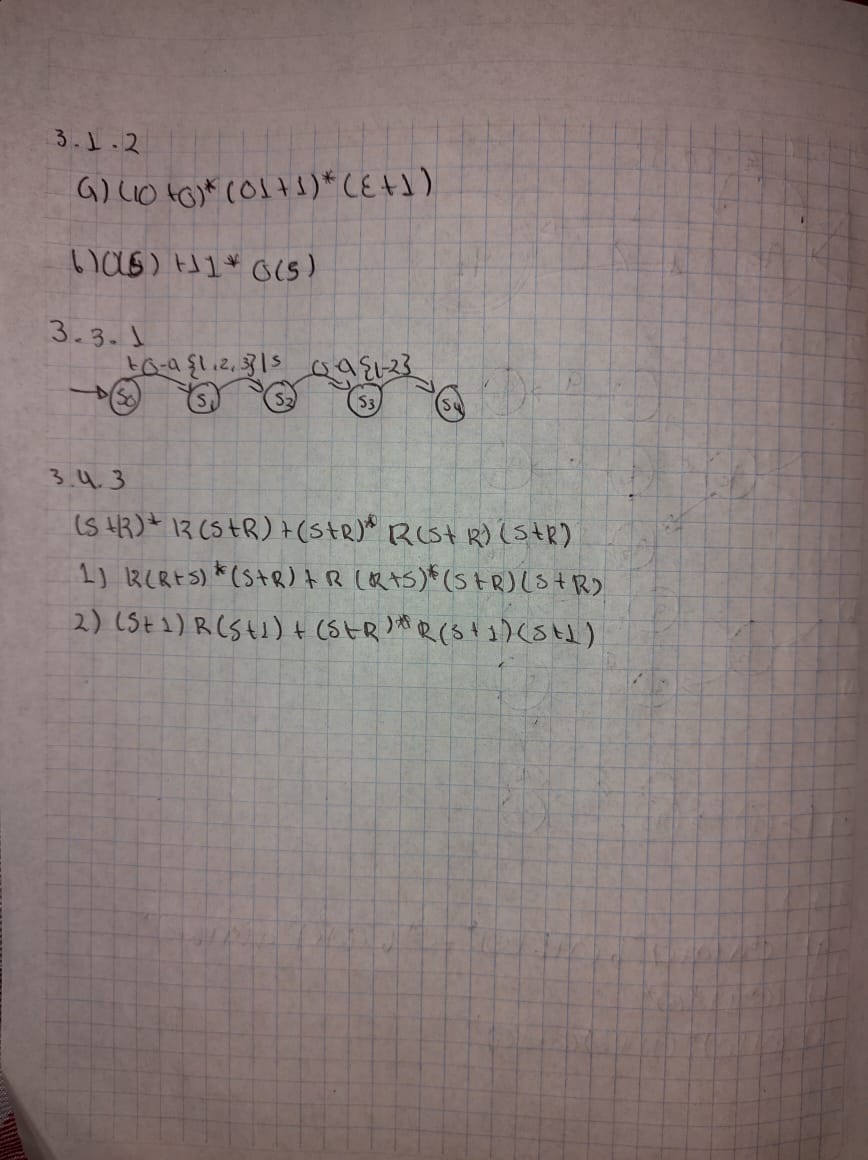 3.1.2
a) (10+0)* (01+1)* (ε+1)
b) +11* 0(5)
3.3.1
{1,2,3}|s {1-2}
S0 S1 S2 S3 S4
3.4.3
(S+R)* R(S+R)+(S+R)* R(S+R)(S+R)
1) R(R+S)*(S+R)+R (R+S)*(S+R)(S+R)
2) (S+1)R(S+1)+(S+R)*R(S+1)(S+1)